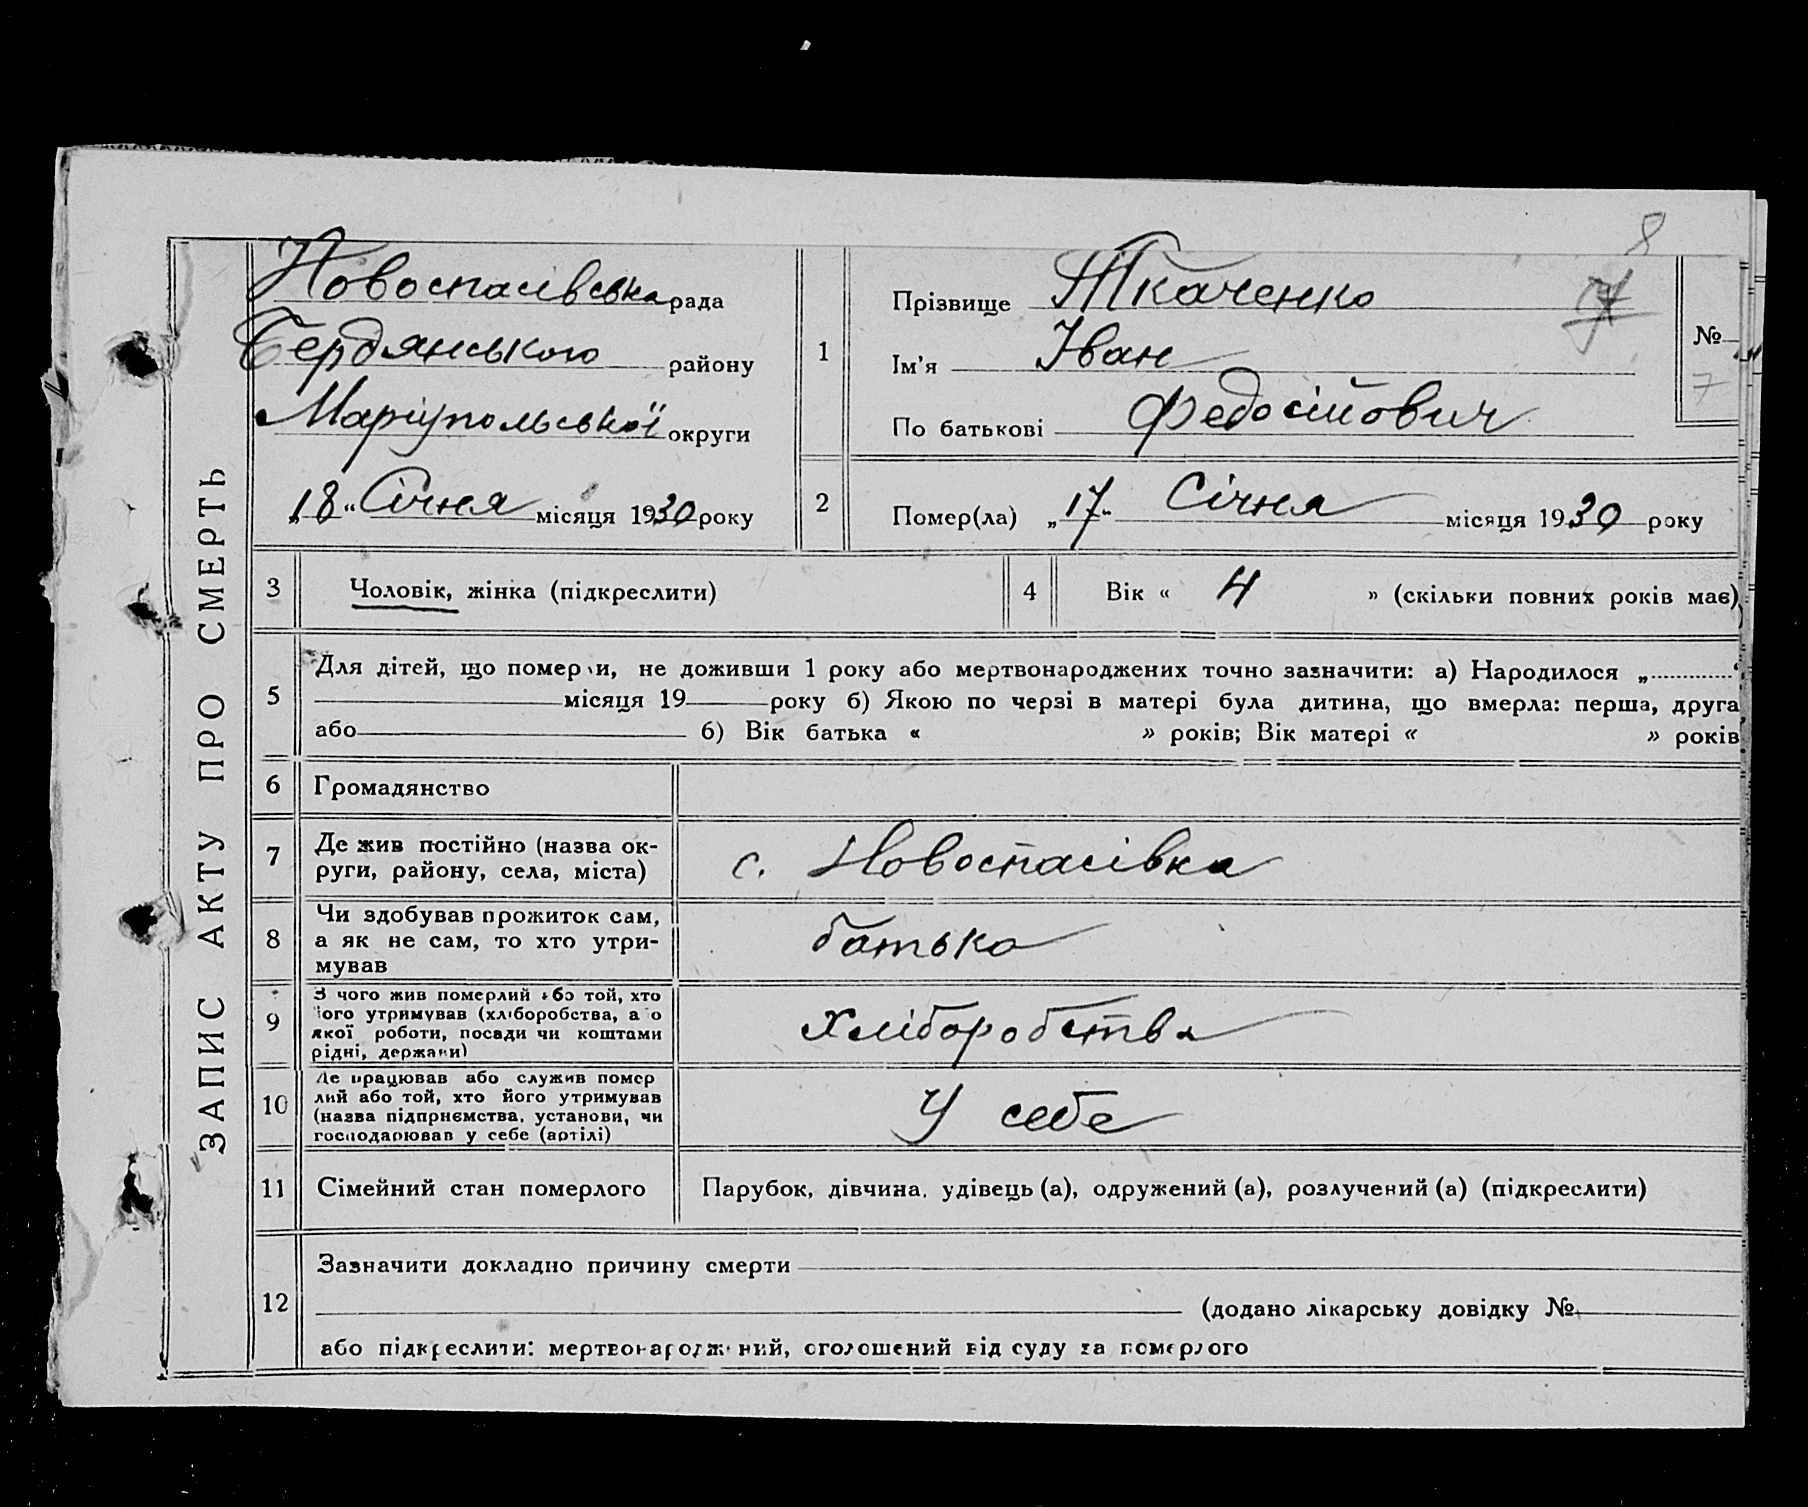 8
ЗАПИС АКТУ ПРО СМЕРТЬ
Новоспасівська рада
Бердянського району
Маріупольської округи
„18“ Січня місяця 1930 року
1
Прізвище Ткаченко
Ім'я Іван
По батькові Федосійович
17
№
7
2
Помер(ла) „17“ Січня місяця 1930 року
3 Чоловік, жінка (підкреслити)
4 Вік « 4 » (скільки повних років має)
5 Для дітей, що померли, не доживши 1 року або мертвонароджених точно зазначити: а) Народилося „
місяця 19 року б) Якою по черзі в матері була дитина, що вмерла: перша, друга
або б) Вік батька « » років; Вік матері « » років
6 Громадянство
7 Де жив постійно (назва ок-
руги, району, села, міста)
с. Новоспасівка
8 Чи здобував прожиток сам,
а як не сам, то хто утри-
мував
батько
9 З чого жив померлий або той, хто
його утримував (хліборобства, або
якої роботи, посади чи коштами
рідні, держави)
Хліборобства
10 Де працював або служив помер
лий або той, хто його утримував
(назва підприємства, установи, чи
господарював у себе (артілі)
У себе
11 Сімейний стан померлого
Парубок, дівчина, удівець (а), одружений (а), розлучений (а) (підкреслити)
12 Зазначити докладно причину смерти
(додано лікарську довідку №
або підкреслити: мертвонароджений, оголошений від суду за померлого